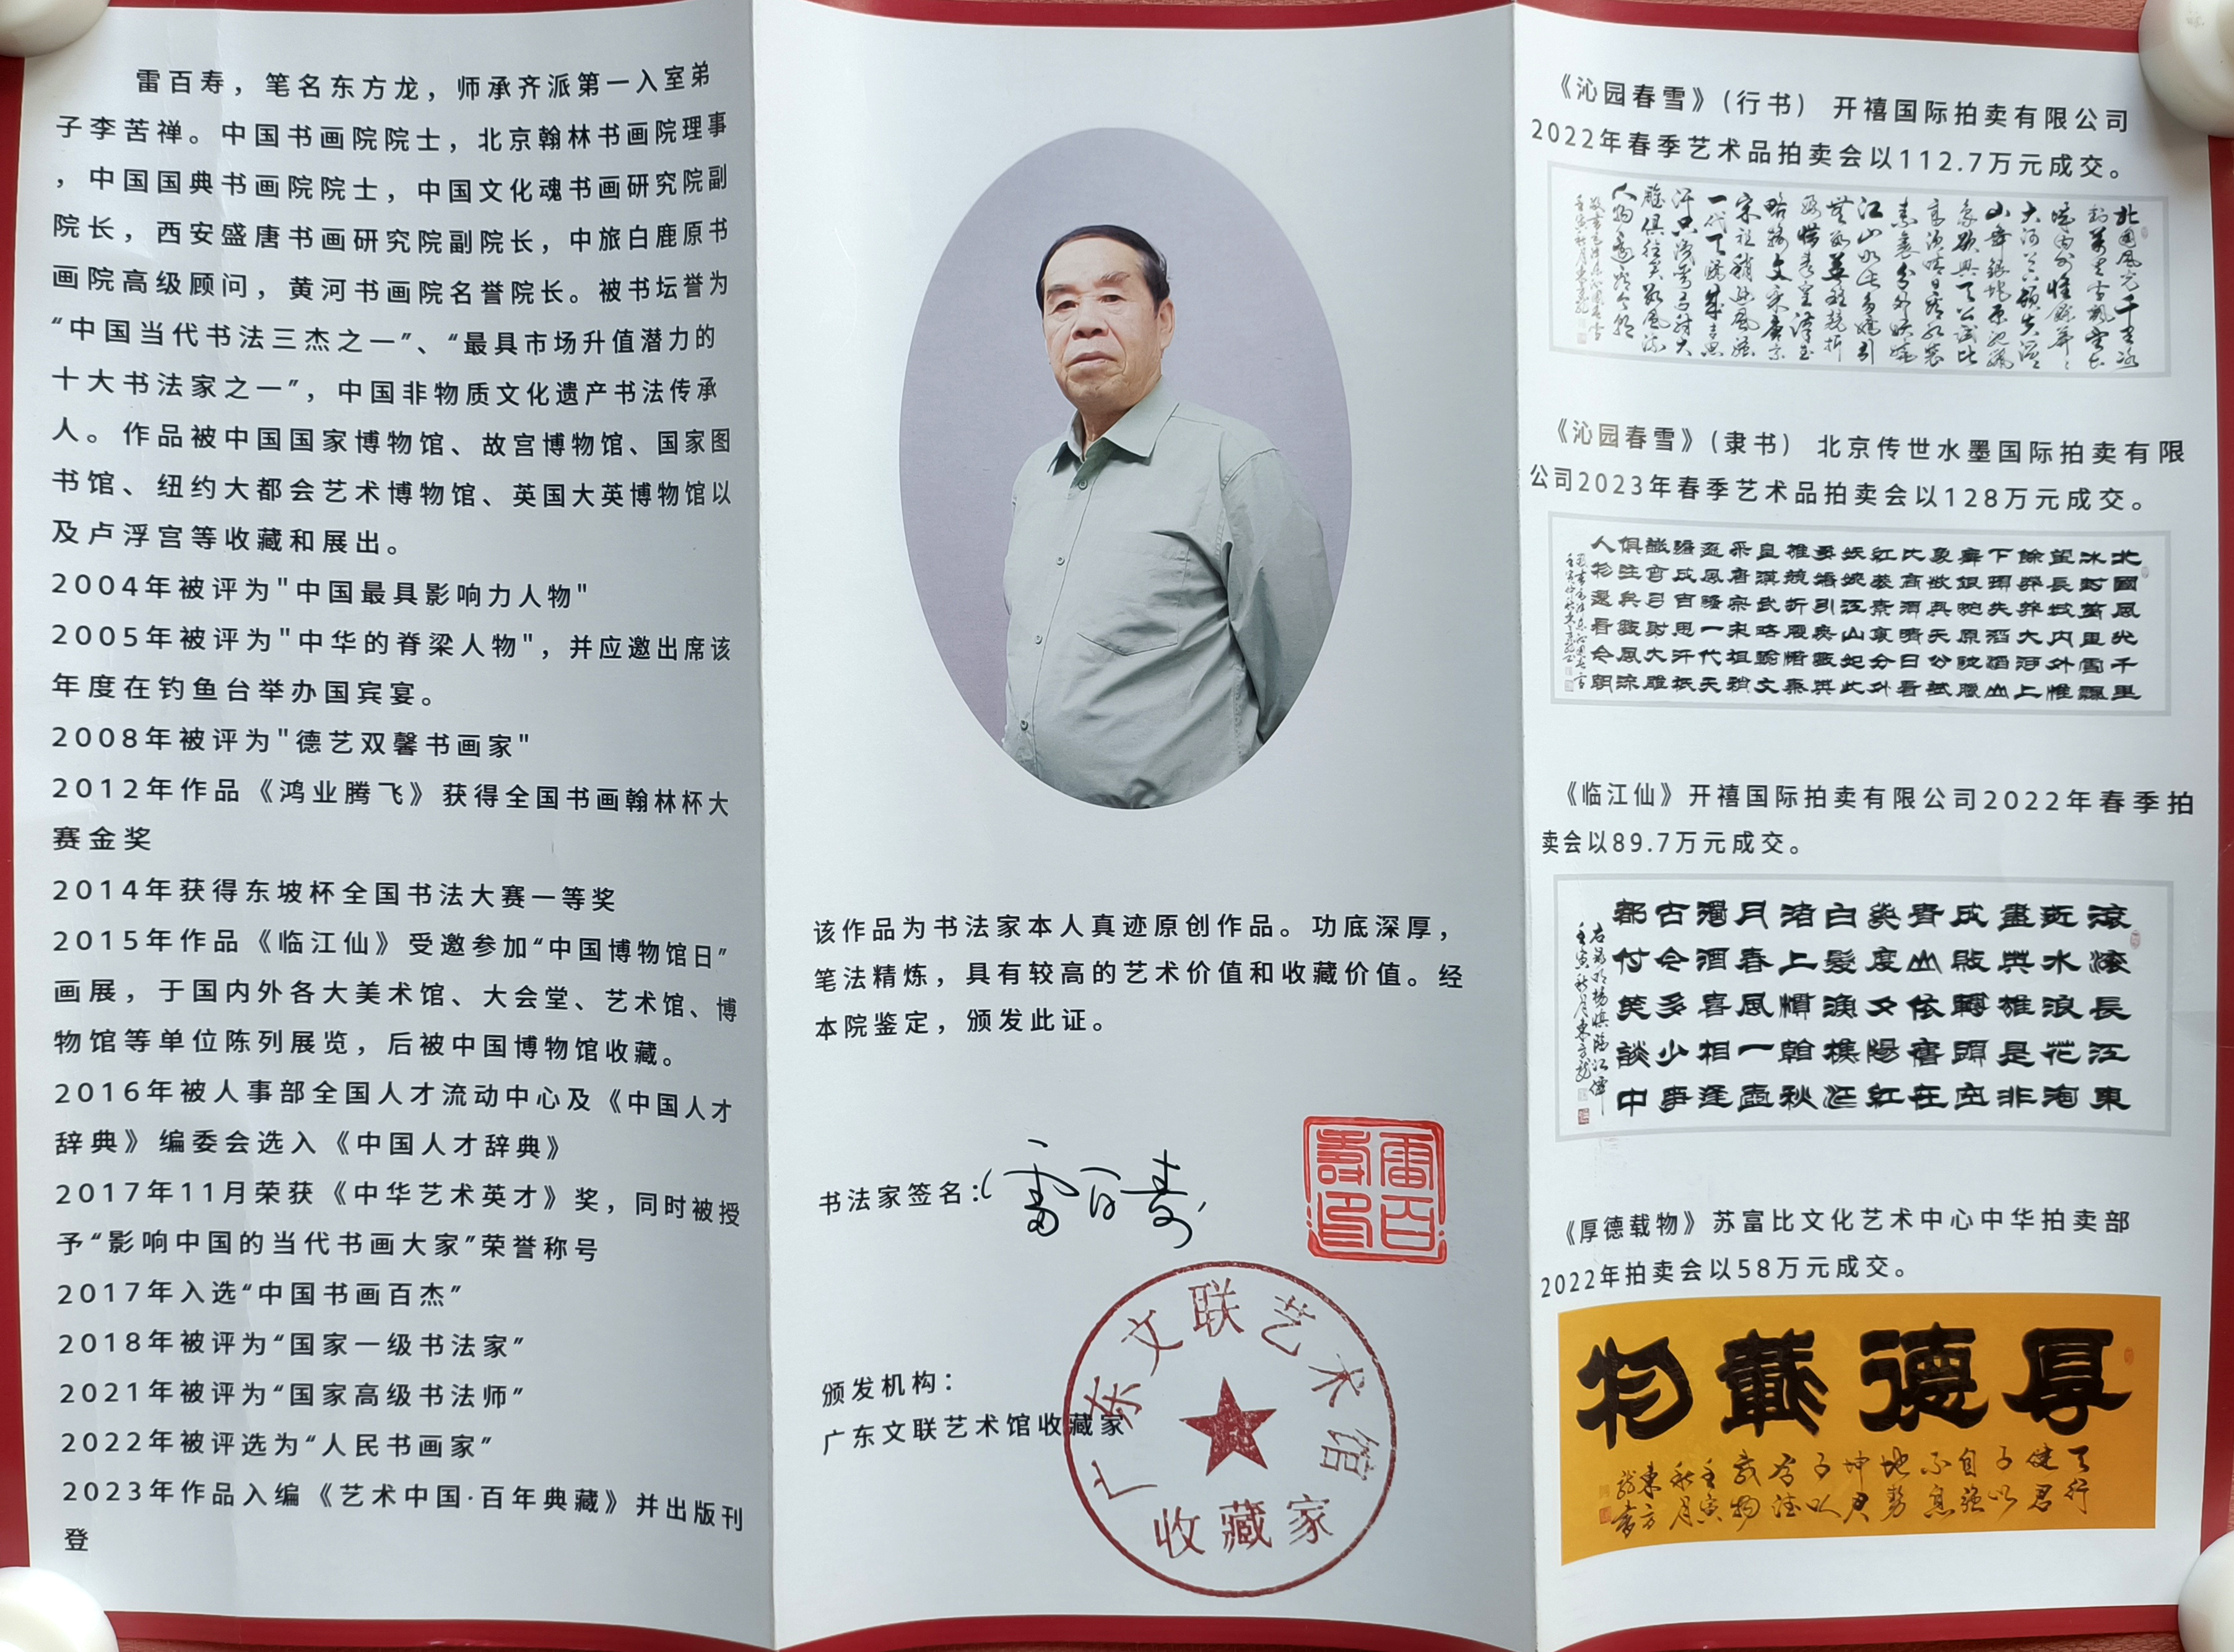 雷百寿，笔名东方龙，师承齐派第一入室弟
子李苦禅。中国书画院院士，北京翰林书画院理事
，中国国典书画院院士，中国文化魂书画研究院副
院长，西安盛唐书画研究院副院长，中旅白鹿原书
画院高级顾问，黄河书画院名誉院长。被书坛誉为
“中国当代书法三杰之一”、“最具市场升值潜力的
十大书法家之一”，中国非物质文化遗产书法传承
人。作品被中国国家博物馆、故宫博物馆、国家图
书馆、纽约大都会艺术博物馆、英国大英博物馆以
及卢浮宫等收藏和展出。
2004年被评为"中国最具影响力人物"
2005年被评为"中华的脊梁人物"，并应邀出席该
年度在钓鱼台举办国宾宴。
2008年被评为"德艺双馨书画家"
2012年作品《鸿业腾飞》获得全国书画翰林杯大
赛金奖
2014年获得东坡杯全国书法大赛一等奖
2015年作品《临江仙》受邀参加“中国博物馆日”
画展，于国内外各大美术馆、大会堂、艺术馆、博
物馆等单位陈列展览，后被中国博物馆收藏。
2016年被人事部全国人才流动中心及《中国人才
辞典》编委会选入《中国人才辞典》
2017年11月荣获《中华艺术英才》奖，同时被授
予“影响中国的当代书画大家”荣誉称号
2017年入选“中国书画百杰”
2018年被评为“国家一级书法家”
2021年被评为“国家高级书法师”
2022年被评选为“人民书画家”
2023年作品入编《艺术中国·百年典藏》并出版刊
登
该作品为书法家本人真迹原创作品。功底深厚，
笔法精炼，具有较高的艺术价值和收藏价值。经
本院鉴定，颁发此证。
书法家签名：雷百寿
雷百寿印
颁发机构：
广东文联艺术馆收藏家
广东文联艺术馆
收藏家
《沁园春雪》（行书） 开禧国际拍卖有限公司
2022年春季艺术品拍卖会以112.7万元成交。
《沁园春雪》（隶书） 北京传世水墨国际拍卖有限
公司2023年春季艺术品拍卖会以128万元成交。
北國風光千里
冰封萬里雪飄
望長城內外惟
餘莽莽大河上
下頓失滔滔山
舞銀蛇原馳臘
象欲與天公試
比高須晴日看
紅裝素裹分外
妖嬈江山如此
《临江仙》开禧国际拍卖有限公司2022年春季拍
卖会以89.7万元成交。
滾滾長江東
逝水浪花淘
盡英雄是非
成敗轉頭空
青山依舊在
幾度夕陽紅
白髮漁樵江
渚上慣看秋
月春風一壺
濁酒喜相逢
古今多少事
都付笑談中
《厚德载物》苏富比文化艺术中心中华拍卖部
2022年拍卖会以58万元成交。
厚德載物
天行
健君
子以
自強
不息
地勢
坤君
子以
厚德
載物
壬寅
秋月
東方
龍書